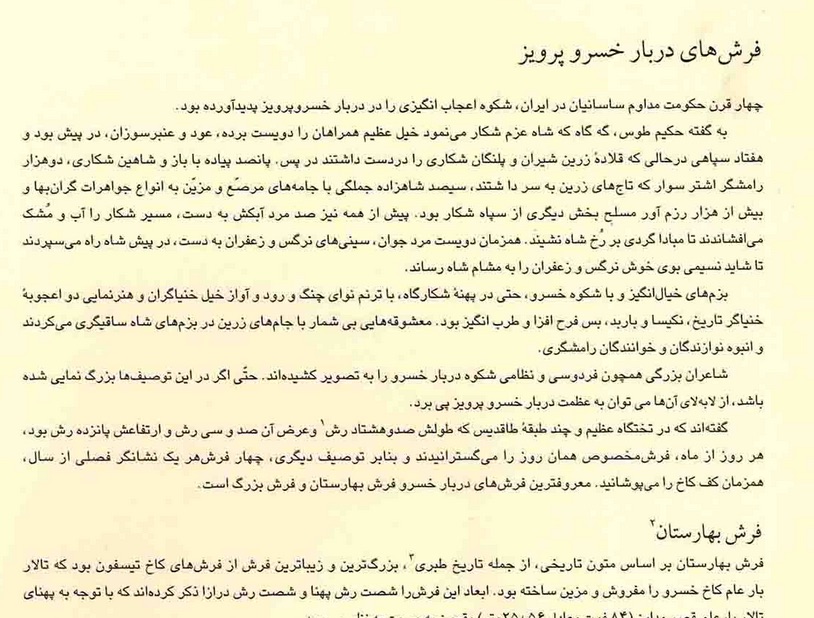 فرش‌های دربار خسرو پرویز
چهار قرن حکومت مداوم ساسانیان در ایران، شکوه اعجاب انگیزی را در دربار خسروپرویز پدیدآورده بود.
به گفته حکیم طوس، گه گاه که شاه عزم شکار می‌نمود خیل عظیم همراهان را دویست برده، عود و عنبرسوزان، در پیش بود و
هفتاد سپاهی درحالی که قلادهٔ زرین شیران و پلنگان شکاری را دردست داشتند در پس. پانصد پیاده با باز و شاهین شکاری، دوهزار
رامشگر اشتر سوار که تاج‌های زرین به سر دا شتند، سیصد شاهزاده جملگی با جامه‌های مرصّع و مزیّن به انواع جواهرات گران‌بها و
بیش از هزار رزم آور مسلح بخش دیگری از سپاه شکار بود. پیش از همه نیز صد مرد آبکش به دست، مسیر شکار را آب و مُشک
می‌افشاندند تا مبادا گردی بر رُخ شاه نشیند. همزمان دویست مرد جوان، سینی‌های نرگس و زعفران به دست، در پیش شاه راه می‌سپردند
تا شاید نسیمی بوی خوش نرگس و زعفران را به مشام شاه رساند.
بزم‌های خیال‌انگیز و با شکوه خسرو، حتی در پهنهٔ شکارگاه، با ترنم نوای چنگ و رود و آواز خیل خنیاگران و هنرنمایی دو اعجوبهٔ
خنیاگر تاریخ، نکیسا و باربد، بس فرح افزا و طرب انگیز بود. معشوقه‌هایی بی شمار با جام‌های زرین در بزم‌های شاه ساقیگری می‌کردند
و انبوه نوازندگان و خوانندگان رامشگری.
شاعران بزرگی همچون فردوسی و نظامی شکوه دربار خسرو را به تصویر کشیده‌اند. حتّی اگر در این توصیف‌ها بزرگ نمایی شده
باشد، از لابه‌لای آن‌ها می توان به عظمت دربار خسرو پرویز پی برد.
گفته‌اند که در تختگاه عظیم و چند طبقهٔ طاقدیس که طولش صدوهشتاد رش۱ وعرض آن صد و سی رش و ارتفاعش پانزده رش بود،
هر روز از ماه، فرش‌مخصوص همان روز را می‌گسترانیدند و بنابر توصیف دیگری، چهار فرش‌هر یک نشانگر فصلی از سال،
همزمان کف کاخ را می‌پوشانید. معروفترین فرش‌های دربار خسرو فرش بهارستان و فرش بزرگ است.
فرش بهارستان۲
فرش بهارستان بر اساس متون تاریخی، از جمله تاریخ طبری۳، بزرگ‌ترین و زیباترین فرش از فرش‌های کاخ تیسفون بود که تالار
بار عام کاخ خسرو را مفروش و مزین ساخته بود. ابعاد این فرش‌را شصت رش پهنا و شصت رش درازا ذکر کرده‌اند که با توجه به پهنای